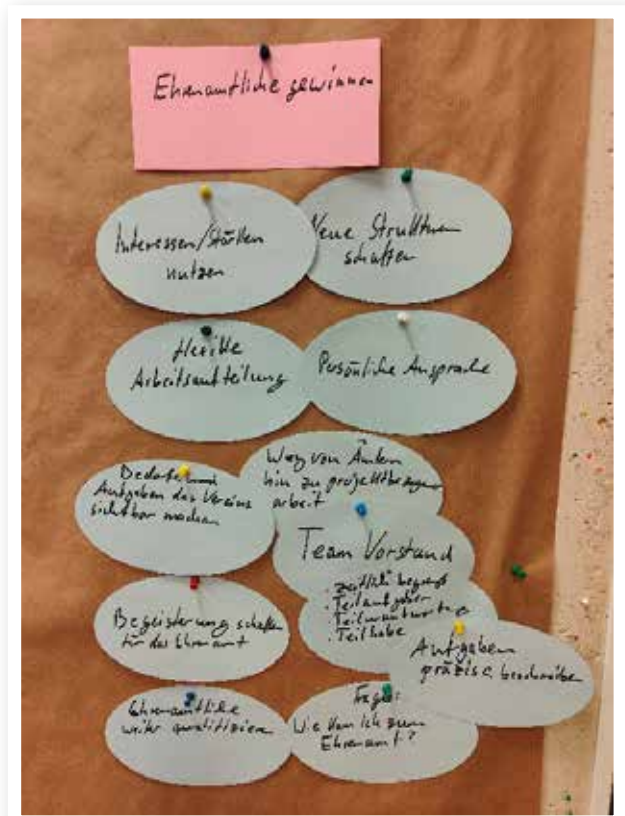 Ehrenamtliche gewinnen
Interessen/Stärken
nutzen
Neue Strukturen
schaffen
Flexible
Arbeitsaufteilung
Persönliche Ansprache
Weg von Ämtern
hin zu projektbezogener
arbeit
Bedarfe und
Aufgaben des Vereins
sichtbar machen
Team Vorstand
· zeitlich begrenzt
· Teilaufgaben
· Teilverantwortung
· Teilhabe
Begeisterung schaffen
für das Ehrenamt
Aufgaben
präzise beschreiben
Ehrenamtliche
weiter qualifizieren
Frage:
Wie kam ich zum
Ehrenamt?